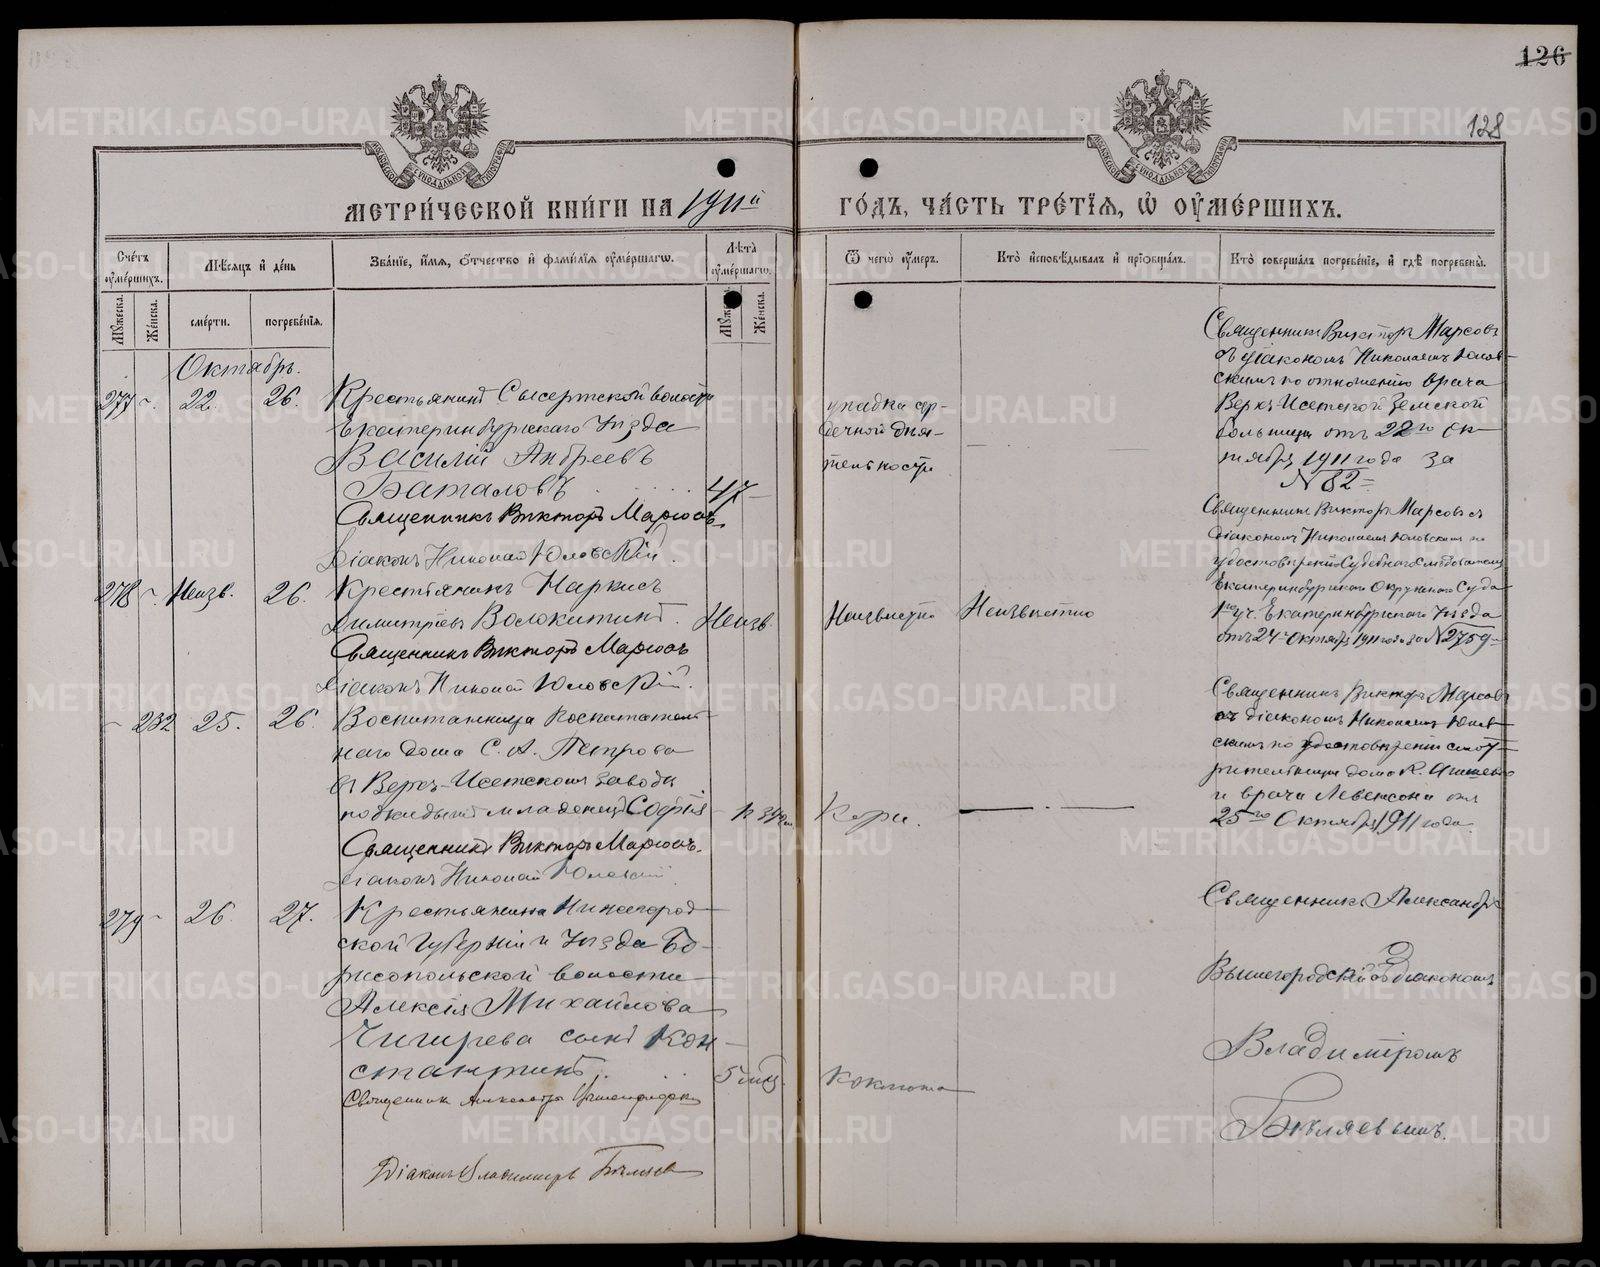 126
128
МЕТРИ́ЧЕСКОЙ КНИ́ГИ НА 1911й ГО́ДЪ, ЧА́СТЬ ТРЕ́ТЇѦ, Ѡ҆ ОУ҆МЕ́РШИХЪ.
Сче́тъ оу҆ме́ршихъ.
Мѣ́сяцъ и҆ де́нь
Зва́нїе, и҆́мѧ, ѻ҆́тчество и҆ фами́лїѧ оу҆ме́ршагѡ.
Лѣ́та оу҆ме́ршагѡ.
Ѿ чегѡ̀ оу҆́меръ.
Кто̀ и҆сповѣ́дывалъ и҆ прїѡбща́лъ.
Кто̀ соверша́лъ погребе́нїе, и҆ гдѣ̀ погребены̀.
Мꙋ́жеска.
Же́нска.
сме́рти.
погребе́нїѧ.
Мꙋ́же
Же́нска.
Октябрь.
277 - 22. 26.
Крестьянинъ Сысертской волости
Екатеринбургскаго Уѣзда
Василій Андреевъ
Баталовъ
47
Священникъ Викторъ Марсовъ.
Діаконъ Николай Юловскій.
упадка сер-
дечной дѣя-
тельности
Священникъ Викторъ Марсовъ
съ діакономъ Николаемъ Юлов-
скимъ по отношенію врача
Верхъ-Исетской Земской
больницы отъ 22го Ок-
тября 1911 года за
№ 82
278 - Неизв. 26.
Крестьянинъ Наркисъ
Димитріевъ Волокитинъ.
Неизв.
Священникъ Викторъ Марсовъ
Діаконъ Николай Юловскій.
Неизвѣстно
Неизвѣстно
Священникъ Викторъ Марсовъ съ
діакономъ Николаемъ Юловскимъ по
удостовѣренію Судебнаго Слѣдователя
Екатеринбургскаго Окружнаго Суда
уч. Екатеринбургскаго Уѣзда
отъ 24го Октября 1911 года за № 2759
- 232 25. 26
Воспитанница Воспитатель-
наго дома С. А. Петрова
въ Верхъ-Исетскомъ заводѣ
подкидышъ младенецъ Софія
Священникъ Викторъ Марсовъ.
Діаконъ Николай Юловскій
Кори.
Священникъ Викторъ Марсовъ
съ діакономъ Николаемъ Юлов-
скимъ по удостовѣренію смот-
рительницы дома К.
и врача Левенсона отъ
25го Октября 1911 года.
279 - 26. 27.
Крестьянина Нижегород-
ской Губерніи и Уѣзда Бо-
рисопольской волости
Алексія Михайлова
Чигирева сынъ Кон-
стантинъ.
5 мѣс.
Священникъ Александръ Вышегородскій
Діаконъ Владимиръ Бѣляевъ
коклюша
Священникъ Александръ
Вышегородскій съ діакономъ
Владиміромъ
Бѣляевымъ.
METRIKI.GASO-URAL.RU